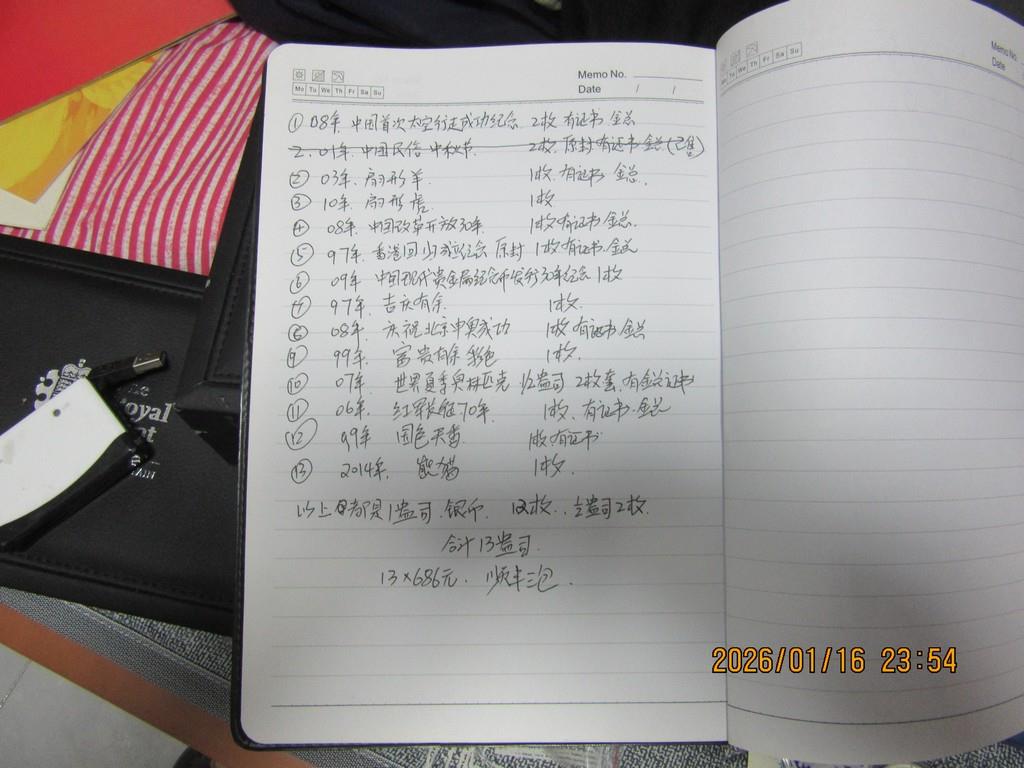 Memo No.
Date / /
Mo Tu We Th Fr Sa Su
① 08年 中国首次太空行走成功纪念 2枚 有证书 金总
2. 01年. 中国民俗 中秋节. 2枚. 原封有证书 金总(已售)
② 03年. 扇形羊. 1枚. 有证书 金总.
③ 10年. 扇形虎 1枚
④ 08年. 中国改革开放30年. 1枚 有证书 金总.
⑤ 97年. 香港回归纪念 原封 1枚有证书.金总
⑥ 09年. 中国现代贵金属纪念币发行30年纪念 1枚
⑦ 97年. 吉庆有余. 1枚.
⑧ 08年. 庆祝北京申奥成功 1枚 有证书.金总
⑨ 99年. 富贵有余 彩色 1枚.
⑩ 07年. 世界夏季奥林匹克 1/2盎司 2枚套. 有金总证书
⑪ 06年. 红军长征70年. 1枚. 有证书.金总
⑫ 99年 国色天香. 1枚有证书
⑬ 2014年. 熊猫 1枚.
以上都是1盎司.银币. 12枚.. ½盎司2枚.
合计13盎司.
13×686元. 顺丰三包.
Memo No.
Date
Mo Tu We Th Fr Sa Su
The
Royal
2026/01/16 23:54